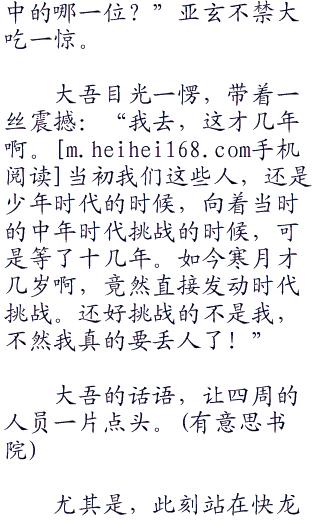 中的哪一位？”亚玄不禁大
吃一惊。
大吾目光一愣，带着一
丝震撼：“我去，这才几年
啊。[m.heihei168.com手机
阅读]当初我们这些人，还是
少年时代的时候，向着当时
的中年时代挑战的时候，可
是等了十几年。如今寒月才
几岁啊，竟然直接发动时代
挑战。还好挑战的不是我，
不然我真的要丢人了！”
大吾的话语，让四周的
人员一片点头。(有意思书
院)
尤其是，此刻站在快龙